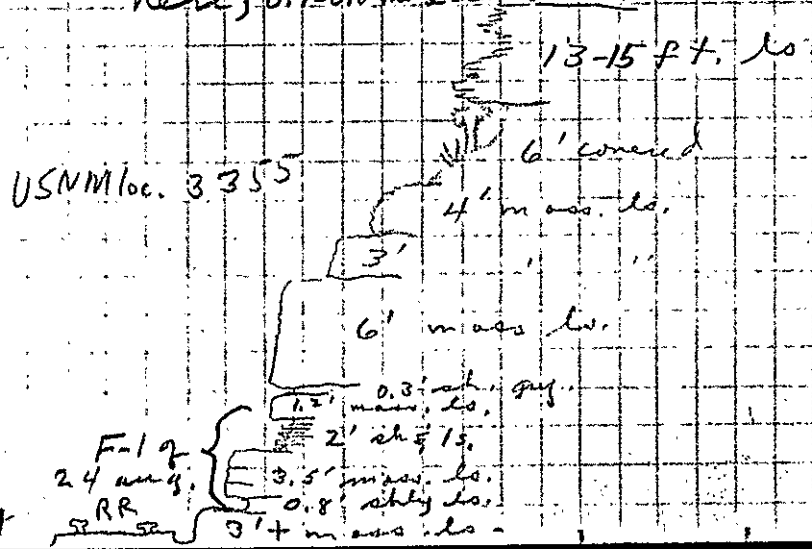 13-15 ft. ls
6' covered
USNM loc. 3355
4' mass. ls.
3' " "
6' mass ls.
0.3' sh. gry.
1.2' mass. ls.
2' sh & ls.
F-1 of
24 aug.
3.5' mass. ls.
0.8' shly ls.
RR
3'+ mass. ls.